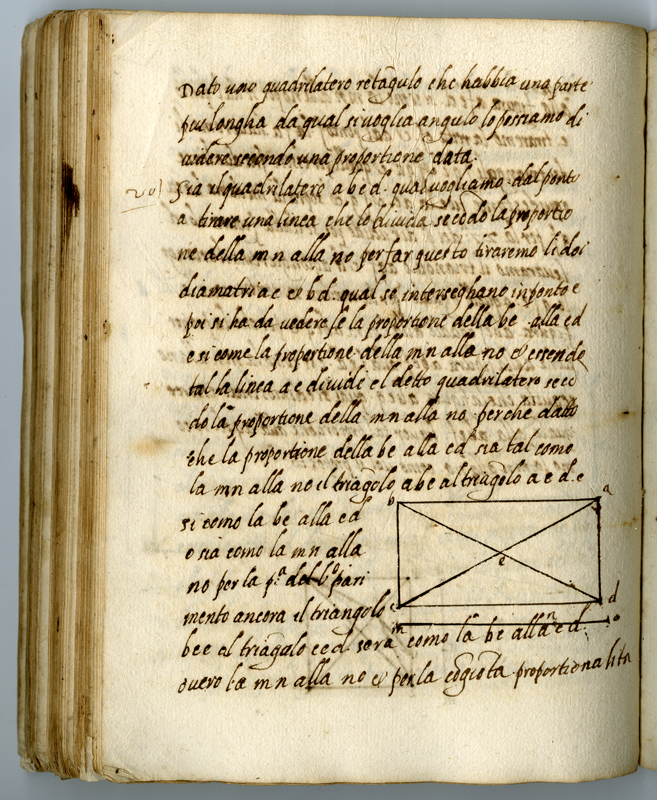 Dato uno quadrilatero retãgulo che habbia una parte
piu longha da qual si voglia angulo lo possiamo di
videre secondo una proportione data.
20)
Sia il quadrilatero a b c d. qual vogliamo dal ponto
a tirare una linea che lo divida secõdo la proportio
ne della m n alla no per far questo tiraremo li doi
diamatri a c et b d. qual se interseghano in ponto e
poi si ha da vedere se la proportione della be alla ed
e si come la proportione della m n alla no et essendo
tal la linea a c dividi el detto quadrilatero secõ
do la proportione della m n alla no perche datto
che la proportione della be alla ed sia tal como
la mn alla no il triãgolo abe al triãgolo a e d. e
si como la be alla ed
o sia como la mn alla
no per la p.ª del 6º pari
mento ancora il triangolo
bec al triãgolo ecd. sera como la be alla ed.
overo la m n alla no et per la cõgiõta proportionalita
b a
e
c d
m n o